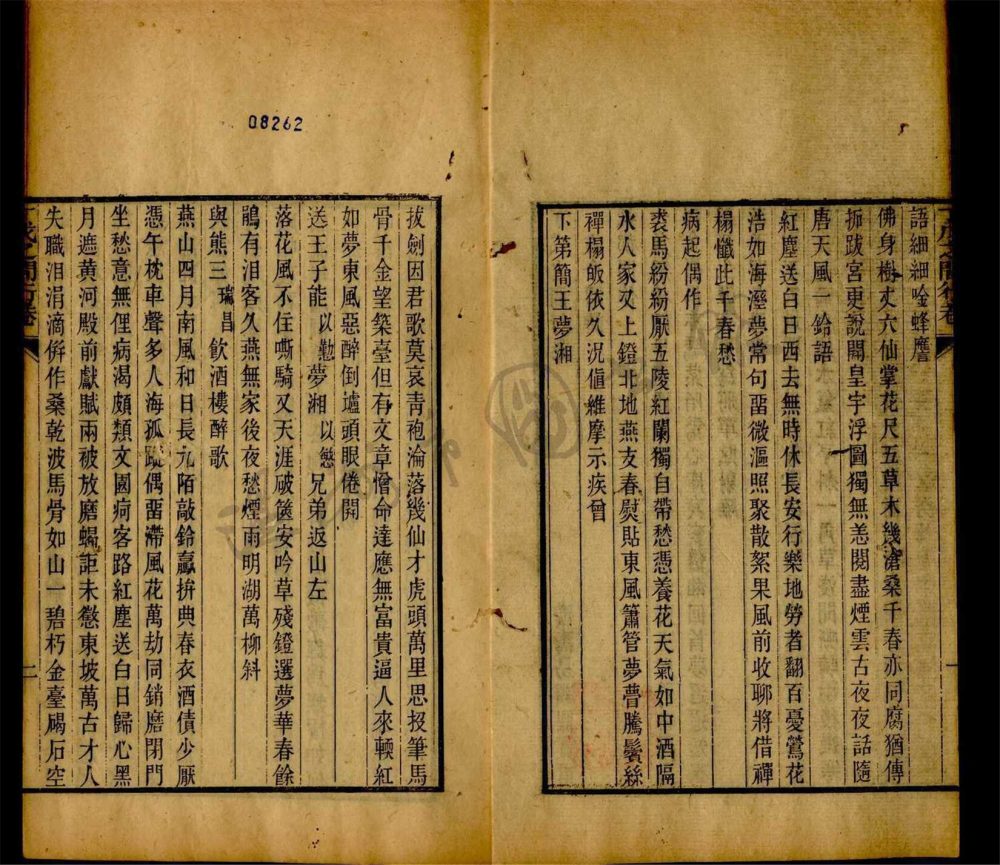 語細細唫蜂簷
佛身樹丈六仙掌花尺五草木幾滄桑千春亦同腐猶傳
挀跋宮更說開皇宇浮圖獨無恙閱盡煙雲古夜夜話隨
唐天風一鈴語
紅塵送白日西去無時休長安行樂地勞者翻百憂鶯花
浩如海瀣夢常句畱微漚照聚散絮果風前收聊將借禪
榻懺此千春愁
病起偶作
裘馬紛紛厭五陵紅闌獨自帶愁憑養花天氣如中酒隔
水人家又上鐙北地燕支春熨貼東風簫管夢瞢騰鬢絲
禪榻皈依久況値維摩示疾曾
下第簡王夢湘
08262
拔劍因君歌莫哀青袍淪落幾仙才虎頭萬里思投筆馬
骨千金望築臺但有文章憎命達應無富貴逼人來輭紅
如夢東風惡醉倒壚頭眼倦開
送王子能以懃夢湘以慜兄弟返山左
落花風不住嘶騎又天涯破篋安吟草殘鐙選夢華春餘
鵑有淚客久燕無家後夜愁煙雨明湖萬柳斜
與熊三瑞昌飲酒樓醉歌
燕山四月南風和日長九陌敲鈴驘拚典春衣酒債少厭
憑午枕車聲多人海孤蹤偶畱滯風花萬劫同銷磨閉門
坐愁意無俚病渴頗類文園疴客路紅塵送白日歸心黑
月遮黃河殿前獻賦兩被放磨蝎詎未憖東坡萬古才人
失職淚涓滴倂作桑乾波馬骨如山一碧朽金臺碣石空
二